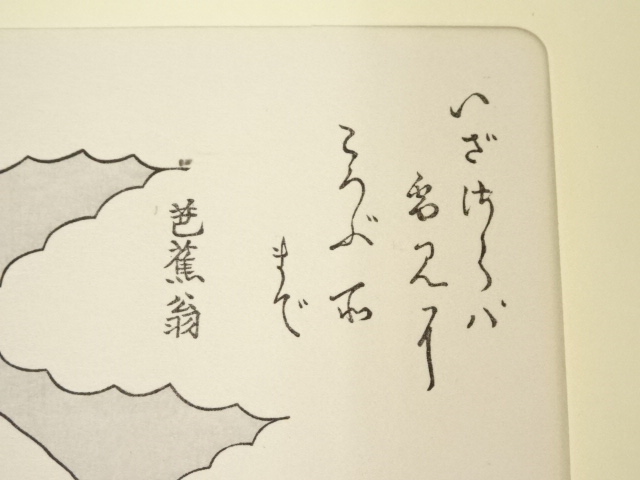 いざさらバ
雪見に
ころぶ所
まで
芭蕉翁